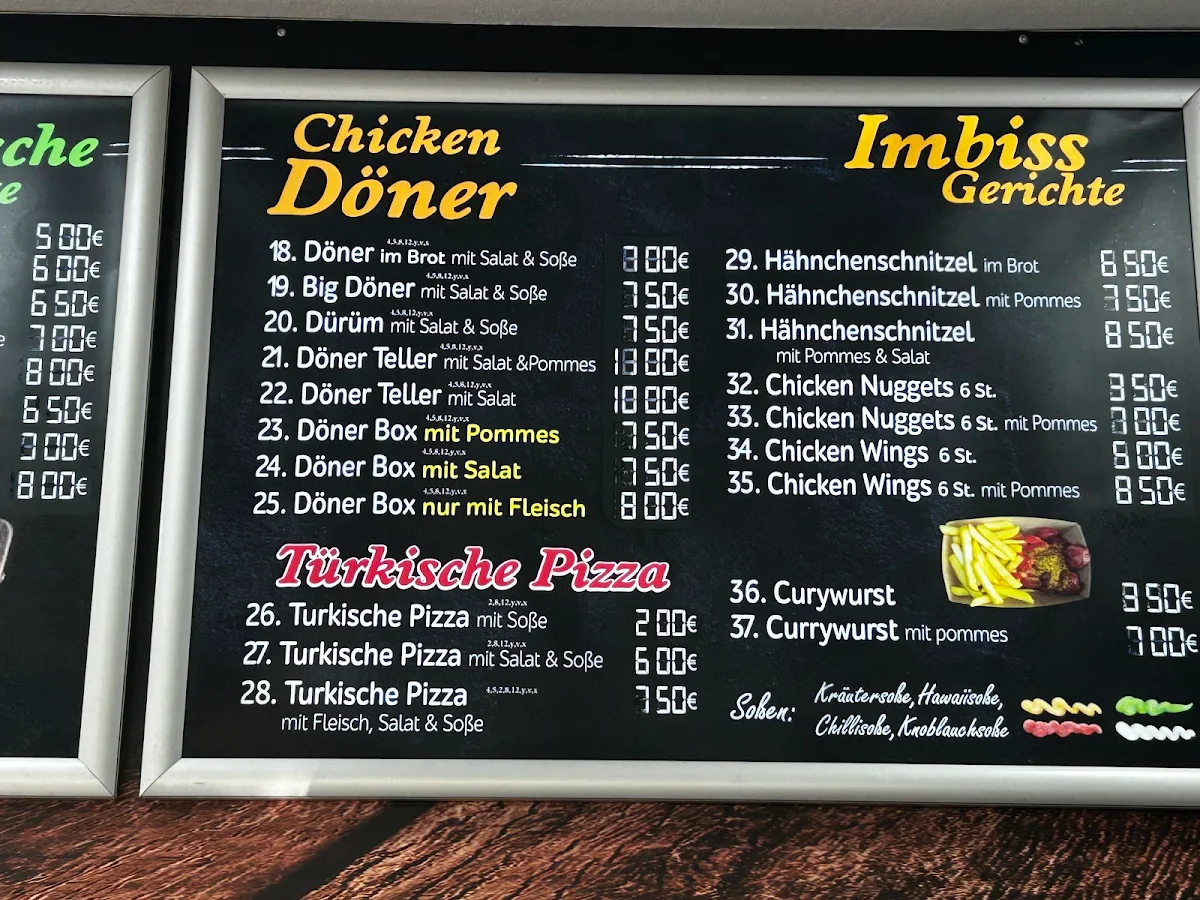 che
e
5 00€
6 00€
6 50€
7 00€
8 00€
6 50€
7 00€
8 00€
Chicken
Döner
18. Döner im Brot mit Salat & Soße 4,5,8,12,y,v,x €
19. Big Döner mit Salat & Soße 4,5,8,12,y,v,x 7 50€
20. Dürüm mit Salat & Soße 4,5,8,12,y,v,x 7 50€
21. Döner Teller mit Salat &Pommes 4,5,8,12,y,v,x €
22. Döner Teller mit Salat 4,5,8,12,y,v,x €
23. Döner Box mit Pommes 4,5,8,12,y,v,x 7 50€
24. Döner Box mit Salat 4,5,8,12,y,v,x 7 50€
25. Döner Box nur mit Fleisch 4,5,8,12,y,v,x 8 00€
Türkische Pizza
26. Turkische Pizza mit Soße 2,8,12,y,v,x 2 00€
27. Turkische Pizza mit Salat & Soße 2,8,12,y,v,x 6 00€
28. Turkische Pizza 4,5,2,8,12,y,v,x 7 50€
mit Fleisch, Salat & Soße
Imbiss
Gerichte
29. Hähnchenschnitzel im Brot 6 50€
30. Hähnchenschnitzel mit Pommes 7 50€
31. Hähnchenschnitzel 8 50€
mit Pommes & Salat
32. Chicken Nuggets 6 St. 3 50€
33. Chicken Nuggets 6 St. mit Pommes 7 00€
34. Chicken Wings 6 St. €
35. Chicken Wings 6 St. mit Pommes 8 50€
36. Curywurst 3 50€
37. Currywurst mit pommes 7 00€
Soßen: Kräutersoße, Hawaiisoße,
Chillisoße, Knoblauchsoße